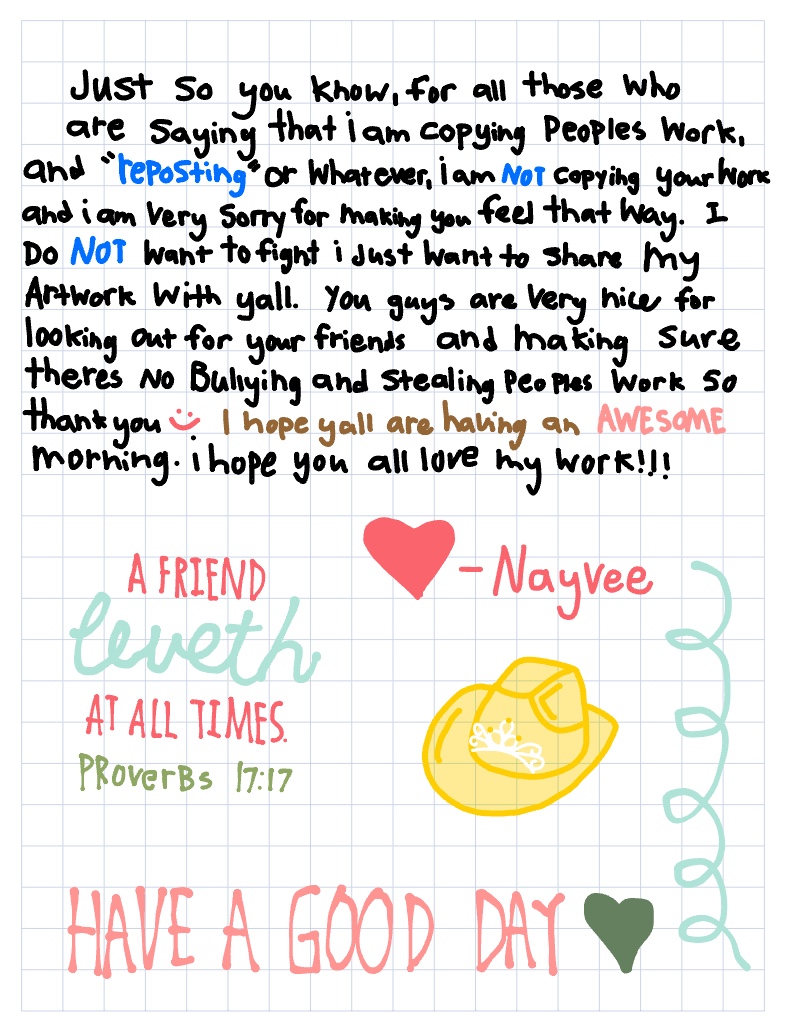 Just so you know, for all those who
are saying that i am copying Peoples work,
and "reposting" or whatever, i am NOT copying your work
and i am very sorry for making you feel that way. I
Do NOT want to fight i just want to share my
Artwork with yall. You guys are very nice for
looking out for your friends and making sure
theres No Bullying and Stealing Peoples work so
thank you I hope yall are having an AWESOME
morning. i hope you all love my work!!!
- Nayvee
A FRIEND
loveth
AT ALL TIMES.
PRoverBs 17:17
HAVE A GOOD DAY